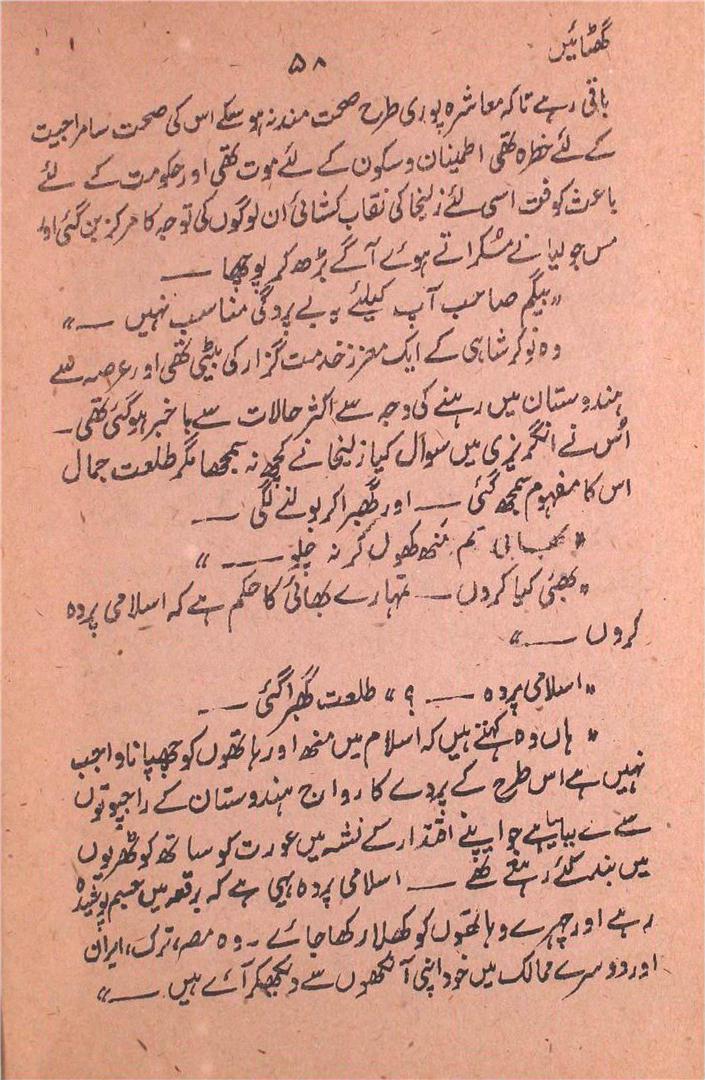 گھٹائیں
۵۸
باقی رہے تاکہ معاشرہ پوری طرح صحت مند نہ ہو سکے اس کی صحت سامراجیت
کے لئے خطرہ تھی اطمینان و سکون کے لئے موت تھی اور حکومت کے لئے
باعث کوفت اسی لئے زلیخا کی نقاب کشائی ان لوگوں کی توجہ کا مرکز بن گئی اور
مس جولیا نے مسکراتے ہوئے آگے بڑھ کر پوچھا —
"بیگم صاحب آپ کیلئے یہ بے پردگی مناسب نہیں —"
وہ نوکر شاہی کے ایک معزز خدمت گزار کی بیٹی تھی اور عرصہ سے
ہندوستان میں رہنے کی وجہ سے اکثر حالات سے باخبر ہو گئی تھی۔
اُس نے انگریزی میں سوال کیا زلیخا نے کچھ نہ سمجھا مگر طلعت جمال
اس کا مفہوم سمجھ گئی — اور گھبرا کر بولنے لگی —
"بھابی تم منھ کھول کر نہ چلو —"
"بھئی کیا کروں — تمہارے بھائی کا حکم ہے کہ اسلامی پردہ
کروں —"
"اسلامی پردہ — ؟" طلعت گھبرا گئی —
"ہاں وہ کہتے ہیں کہ اسلام میں منھ اور ہاتھوں کو چھپانا واجب
نہیں ہے اس طرح کے پردے کا رواج ہندوستان کے راجپوتوں
سے لے لیا ہے جو اپنے اقتدار کے نشہ میں عورت کو سات کوٹھریوں
میں بند کئے رہتے تھے — اسلامی پردہ یہی ہے کہ برقعہ میں جسم پوشیدہ
رہے اور چہرے و ہاتھوں کو کھلا رکھا جائے۔ وہ مصر، ترک، ایران
اور دوسرے ممالک میں خود اپنی آنکھوں سے دیکھکر آئے ہیں —"